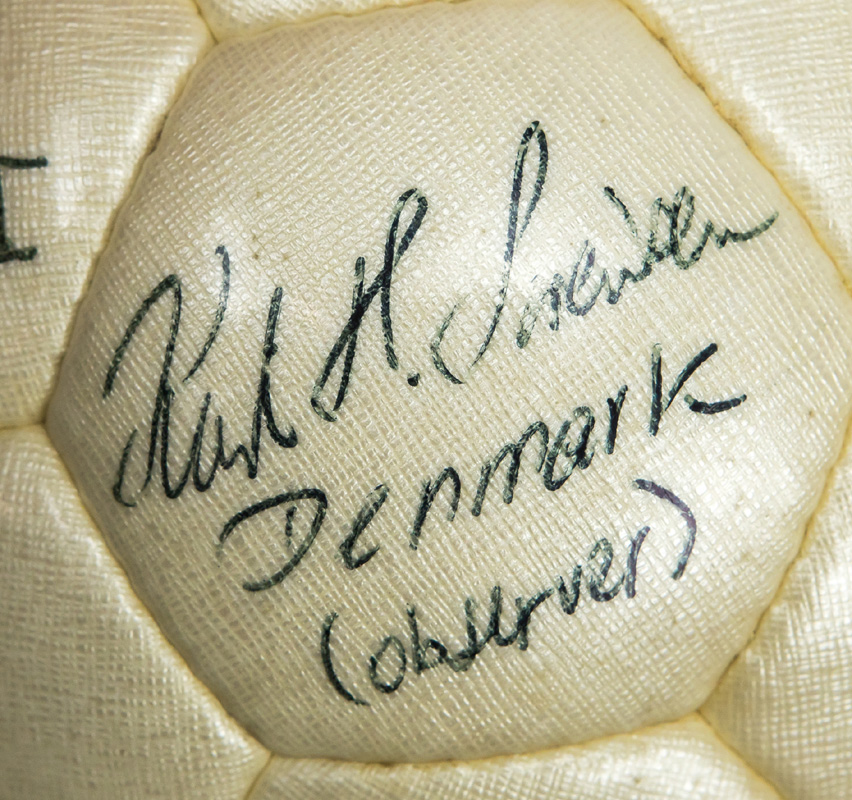 Kurt H. Sørensen
Denmark
(observer)